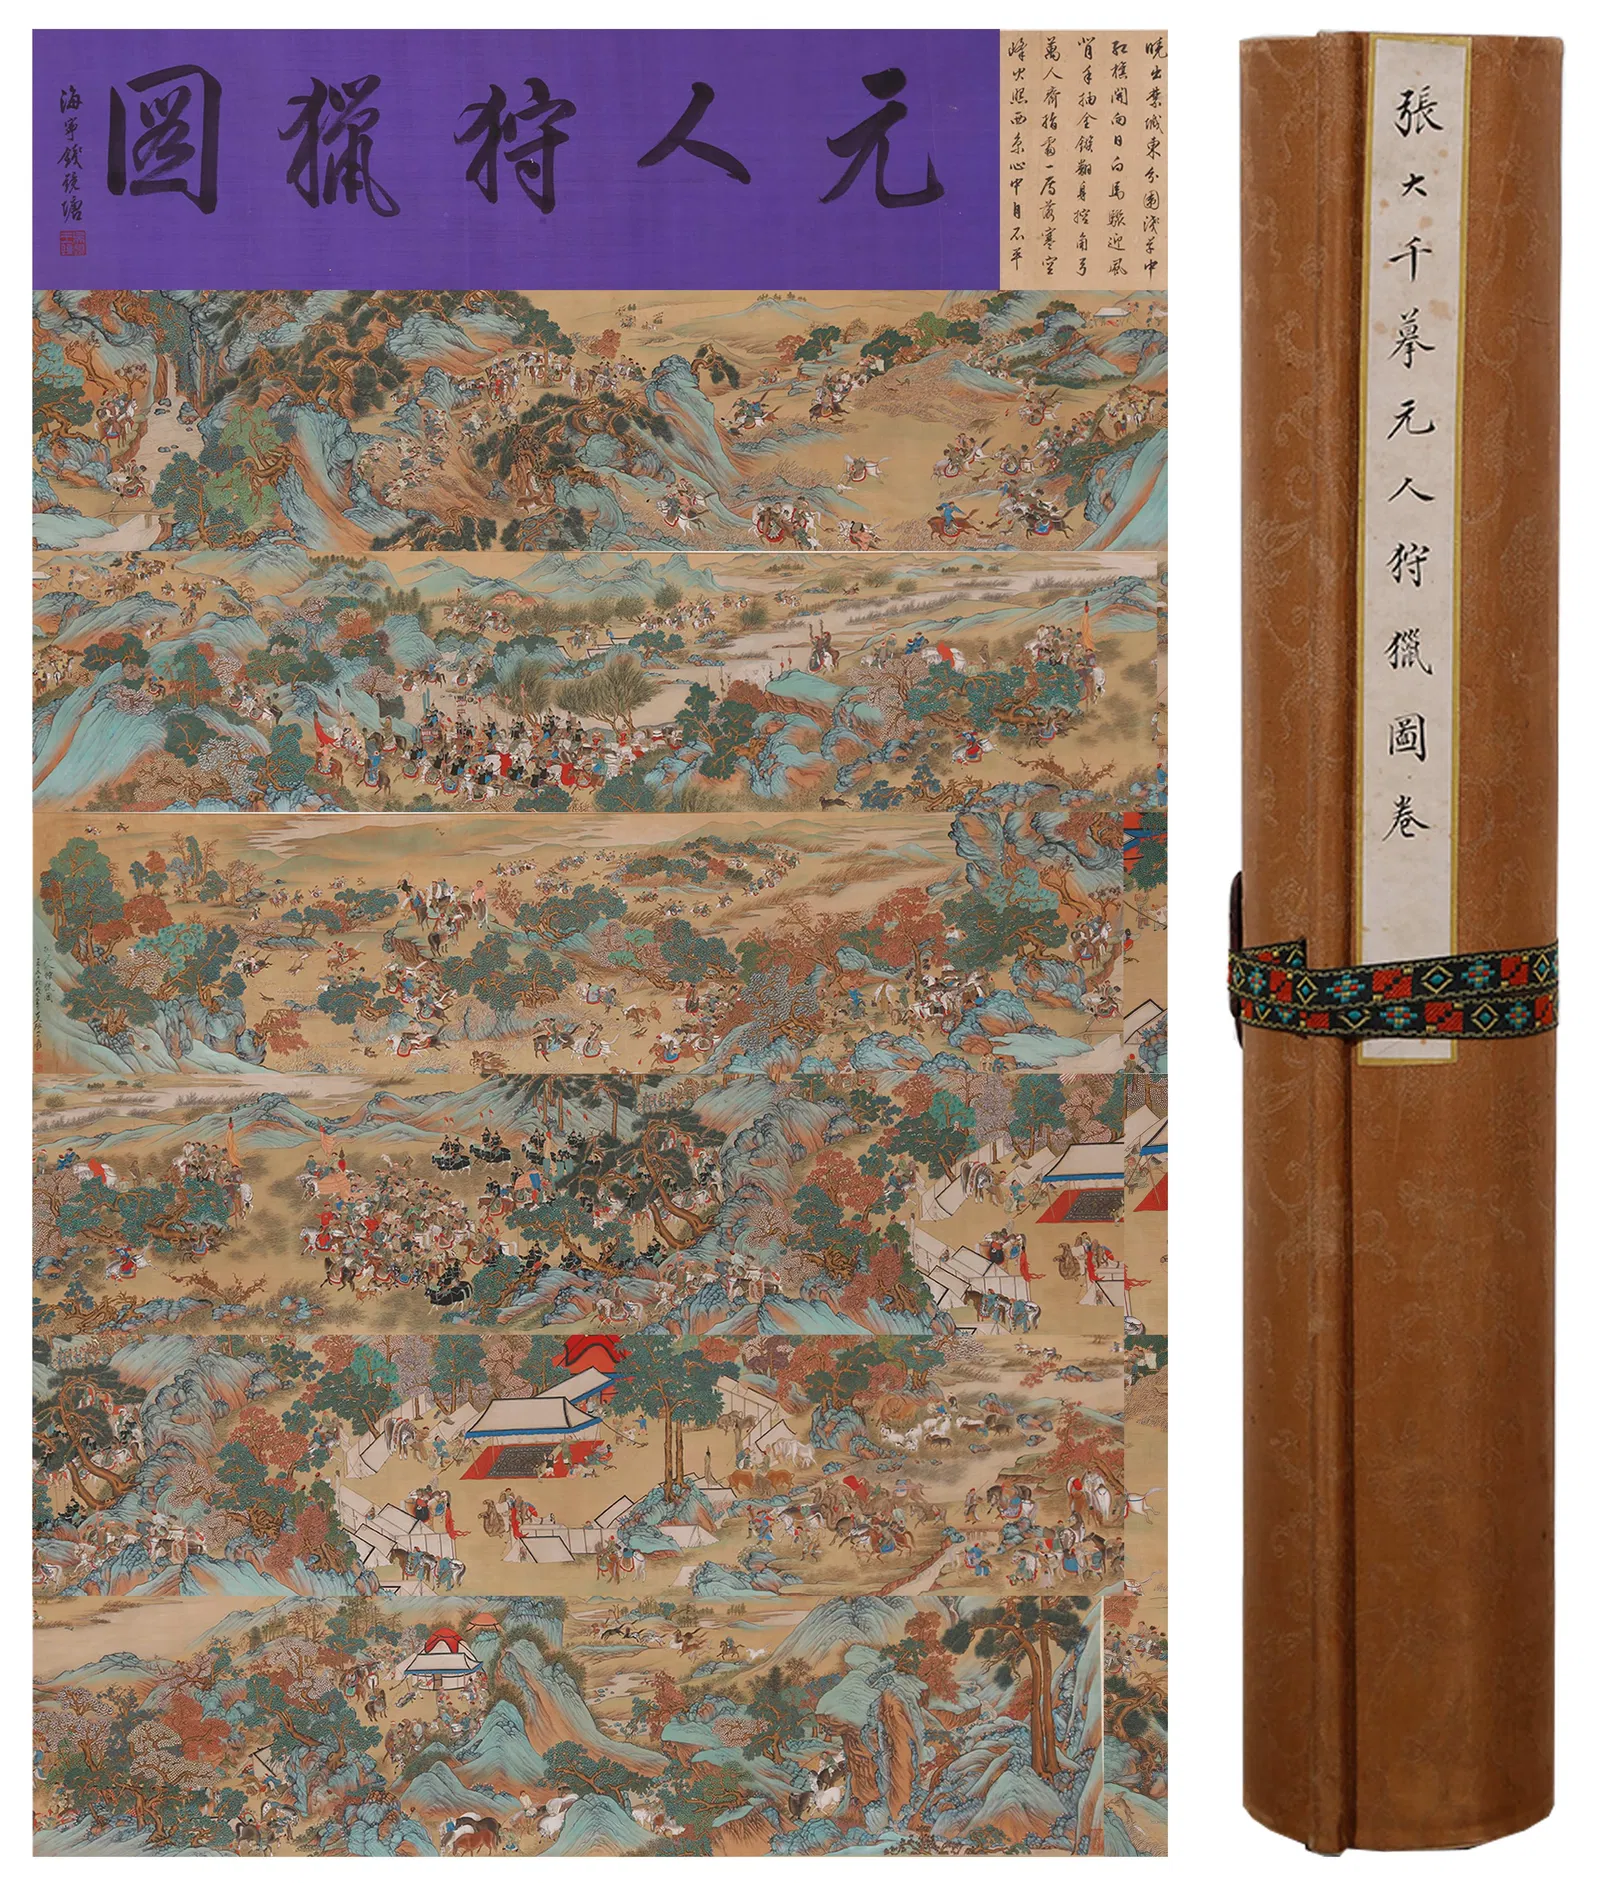 元人狩獵圖
海寧錢鏡塘
曉出禁城東分圍淺草中
紅旗開向日白馬驟迎風
背手抽金鏃翻身控角弓
萬人齊指處一雁落寒空
峰火照西京心中自不平
張大千摹元人狩獵圖卷